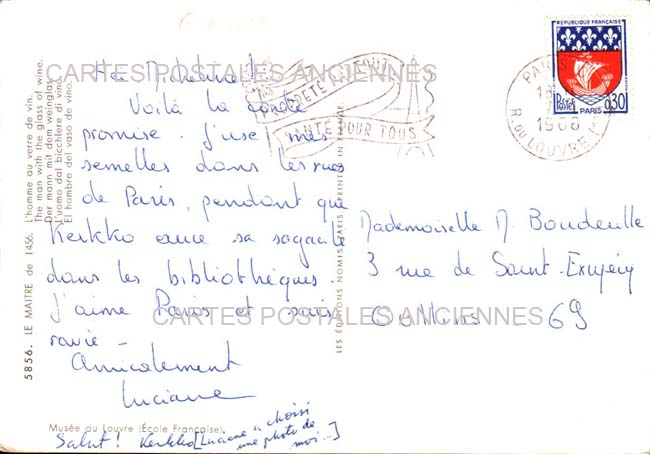 CARTES POSTALES ANCIENNES
Voilà la carte
promise. J'use mes
semelles dans les rues
de Paris, pendant que
Kerkko avec sa sagacité
dans les bibliothèques.
J'aime Paris et suis
ravie -
Amicalement
Luciane
Salut! Kerkko [Luciane a choisi
une photo de
moi...]
Mademoiselle M Boudeulle
3 rue de Saint-Exupéry
Oullins 69
CARTES POSTALES ANCIENNES
5856. LE MAITRE de 1456. L'homme au verre de vin.
The man with the glass of wine.
Der mann mit dem weinglas.
L'uomo dal bicchiere di vino.
El hombre del vaso de vino.
Musée du Louvre (École Française).
LES ÉDITIONS NOMIS, PARIS. PRINTED IN FRANCE
PROPRETÉ PARTOUT
SANTÉ POUR TOUS
REPUBLIQUE FRANÇAISE
Postes
0,30
PARIS
PARIS
1966
R. DU LOUVRE